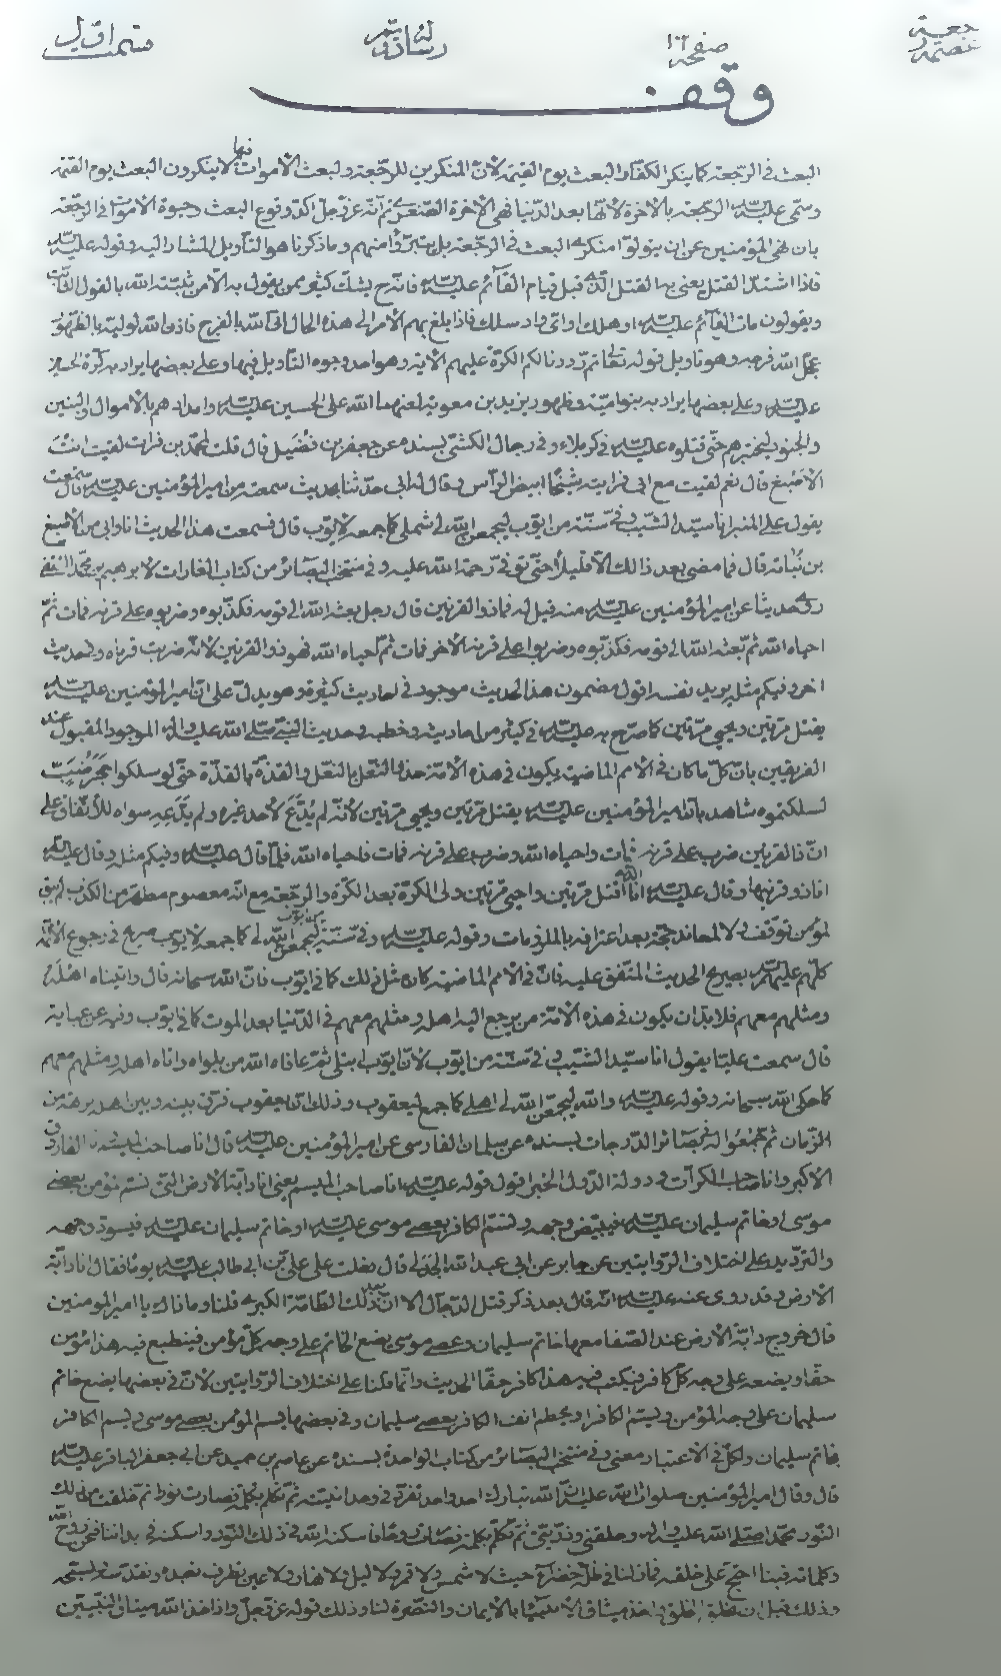 رجعية
وعصمة
صفحة ١٠٢
رسالة
قسمت اول
وقف
البعث فى الرّجعة كما ينكر الكفّار البعث يوم القيمة لانّ المنكرين للرّجعة ولبعث الاموات فيها لا ينكرون البعث يوم القيمة
وسمّى عليه السلم الرّجعة بالآخرة لانّها بعد الدّنيا فهى الآخرة الصّغرى ثم انّه عزّ وجلّ اكد وقوع البعث وحيوة الاموات فى الرجعة
بان نهى المؤمنين عن ان يتولّوا منكرى البعث فى الرّجعة بل يتبرّؤا منهم وما ذكرنا هو التأويل المشار اليه وقوله عليه السلم
فاذا اشتدّ القتل يعنى به القتل الّذى قبل قيام القآئم عليه السلم فانّه ح يشك كثير ممن يقول به الّا من يثبّته الله بالقول الثّابت
ويقولون مات القآئم عليه السلم او هلك او اىّ واد سلك فاذا بلغ بهم الامر الى هذه الحال اتى الله بالفرج فاذن الله لوليّه بالظّهور
عجّل الله فرجه وهو تاويل قوله تعالى ثم رددنا لكم الكرّة عليهم الآية وهو احد وجوه التأويل فيها وعلى بعضها يراد به كرّة الحسين
عليه السلم وعلى بعضها يراد به بنو اميّة وظهور يزيد بن معوية لعنهما الله على الحسين عليه السلم وامدادهم بالاموال والبنين
والجنود ليختبرهم حتّى قتلوه عليه السلم فى كربلاء وفى رجال الكشّى بسنده عن جعفر بن فضيل قال قلت لمحمّد بن فرات لقيت انت
الاصبغ قال نعم لقيته مع ابى فرايته شيخًا ابيض الرّاس وقال له ابى حدّثنا بحديث سمعته من امير المؤمنين عليه السلم قال سمعته
يقول على المنبر انا سيّد الشّيب وفىّ سنّة من ايّوب ليجمعنّ الله لى شملى كما جمعه لايّوب قال فسمعت هذا الحديث انا وابى من الاصبغ
بن نباته قال فما مضى بعد ذالك الّا قليلًا حتّى توفّى رحمة الله عليه وفى منتخب البصائر من كتاب الغارات لابرهيم بن محمّد الثقفى
روى حديثا عن امير المؤمنين عليه السلم منه قيل له فما ذو القرنين قال رجل بعثه الله الى قومه فكذّبوه وضربوه على قرنه فمات ثمّ
احياه الله ثمّ بعثه الله الى قومه فكذّبوه وضربوه على قرنه الآخر فمات ثمّ احياه الله فهو ذو القرنين لانّه ضربت قرناه وفى حديث
آخر وفيكم مثله يريد نفسه اقول مضمون هذا الحديث موجود فى احاديث كثيرة وهو يدلّ على انّ امير المؤمنين عليه السلم
يقتل مرّتين ويحيى مرّتين كما صرّح به عليه السلم فى كثير من احاديثه وخطبه وحديث النّبى صلّى الله عليه وآله الموجود المقبول عند
الفريقين بانّ كلّ ما كان فى الامم الماضية يكون فى هذه الامّة حذو النّعل بالنّعل والقذّة بالقذّة حتّى لو سلكوا جحر ضبّ
لسلكتموه شاهد بانّ امير المؤمنين عليه السلم يقتل مرّتين ويحيى مرّتين لانّه لم يدّع لاحد غيره ولم يدّعه سواه للاتّفاق على
انّ ذا القرنين ضرب على قرنه فمات واحياه الله وضرب على قرنه فمات فاحياه الله فلمّا قال عليه السلم وفيكم مثله وقال عليه السلم
انا ذو قرنيها وقال عليه السلم انا الّذى اقتل مرّتين واحيى مرّتين ولى الكرّة بعد الكرّة والرّجعة مع انّه معصوم مطهّر من الكذب لم يبق
لمؤمن توقّف ولا لمعاند حجّة بعد اعترافه بالملزومات وقوله عليه السلم وفىّ سنّة من ايّوب ليجمعنّ الله لى كما جمعه لايّوب صريح فى رجوع الائمّة
كلّهم عليهم السلم بصريح الحديث المتّفق عليه فانّ فى الامم الماضية كان مثل ذلك كما فى ايّوب فانّ الله سبحانه قال وآتيناه اهله
ومثلهم معهم فلا بدّ ان يكون فى هذه الامّة من يرجع اليه اهله ومثلهم معهم فى الدّنيا بعد الموت كما فى ايّوب وفيه عن عباية
قال سمعت عليّا يقول انا سيّد الشّيب وفىّ سنّة من ايّوب لانّ ايّوب ابتلى ثمّ عافاه الله من بلواه وآتاه اهله ومثلهم معهم
كما حكى الله سبحانه وقوله عليه السلم والله ليجمعنّ الله لى اهلى كما جمع ليعقوب وذلك انّ يعقوب فرّق بينه وبين اهله برهة من
الزّمان ثم جمعوا له وفى بصائر الدّرجات بسنده عن سلمان الفارسى عن امير المؤمنين عليه السلم قال انا صاحب الميسم وانا الفاروق
الاكبر وانا صاحب الكرّات ودولة الدّول الخبر اقول قوله عليه السلم انا صاحب الميسم يعنى انا دابّة الارض الّتى تسم المؤمن بعصى
موسى او خاتم سليمان عليه السلم فيبيضّ وجهه وتسم الكافر بعصى موسى عليه السلم او خاتم سليمان عليه السلم فيسودّ وجهه
والترديد على اختلاف الرّوايتين عن جابر عن ابى عبد الله الجدلى قال دخلت على علىّ بن ابى طالب عليه السلم يومًا فقال انا دابّة
الارض وقد روى عنه عليه السلم انّه قال بعد ذكر قتل الدّجال الا انّ بعد ذلك الطّامّة الكبرى قلنا وما ذاك يا امير المؤمنين
قال خروج دابّة الارض عند الصّفا معها خاتم سليمان وعصى موسى يضع الخاتم على وجه كلّ مؤمن فينطبع فيه هذا مؤمن
حقّا ويضعه على وجه كلّ كافر فيكتب فيه هذا كافر حقّا الحديث وانّما قلنا على اختلاف الرّوايتين لانّ فى بعضها يضع خاتم
سليمان على وجه المؤمن ويسم الكافر او يحطم انف الكافر بعصى سليمان وفى بعضها يسم المؤمن بعصى موسى ويسم الكافر
بخاتم سليمان ولكلّ فى الاعتبار معنى وفى منتخب البصائر من كتاب الواحدة بسنده عن عاصم بن حميد عن ابى جعفر الباقر عليه السلم
قال وقال امير المؤمنين صلوات الله عليه انّ الله تبارك احد واحد تفرّد فى وحدانيّته ثمّ تكلّم بكلمة فصارت نورا ثم خلق من ذلك
النّور محمّدا صلّى الله عليه وآله وخلقنى وذرّيّتى ثم تكلّم بكلمة فصارت روحًا فاسكنه الله فى ذلك النّور واسكنه فى بداننا فنحن روح الله
وكلماته فبنا احتجّ على خلقه فما زلنا فى ظلّة خضرآء حيث لا شمس ولا قمر ولا ليل ولا نهار ولا عين تطرف نعبده ونقدّسه ونسبّحه
وذلك قبل ان يخلق الخلق واخذ ميثاق الانبيآء بالايمان والنّصرة لنا وذلك قوله عزّ وجلّ واذ اخذ الله ميثاق النّبيّين